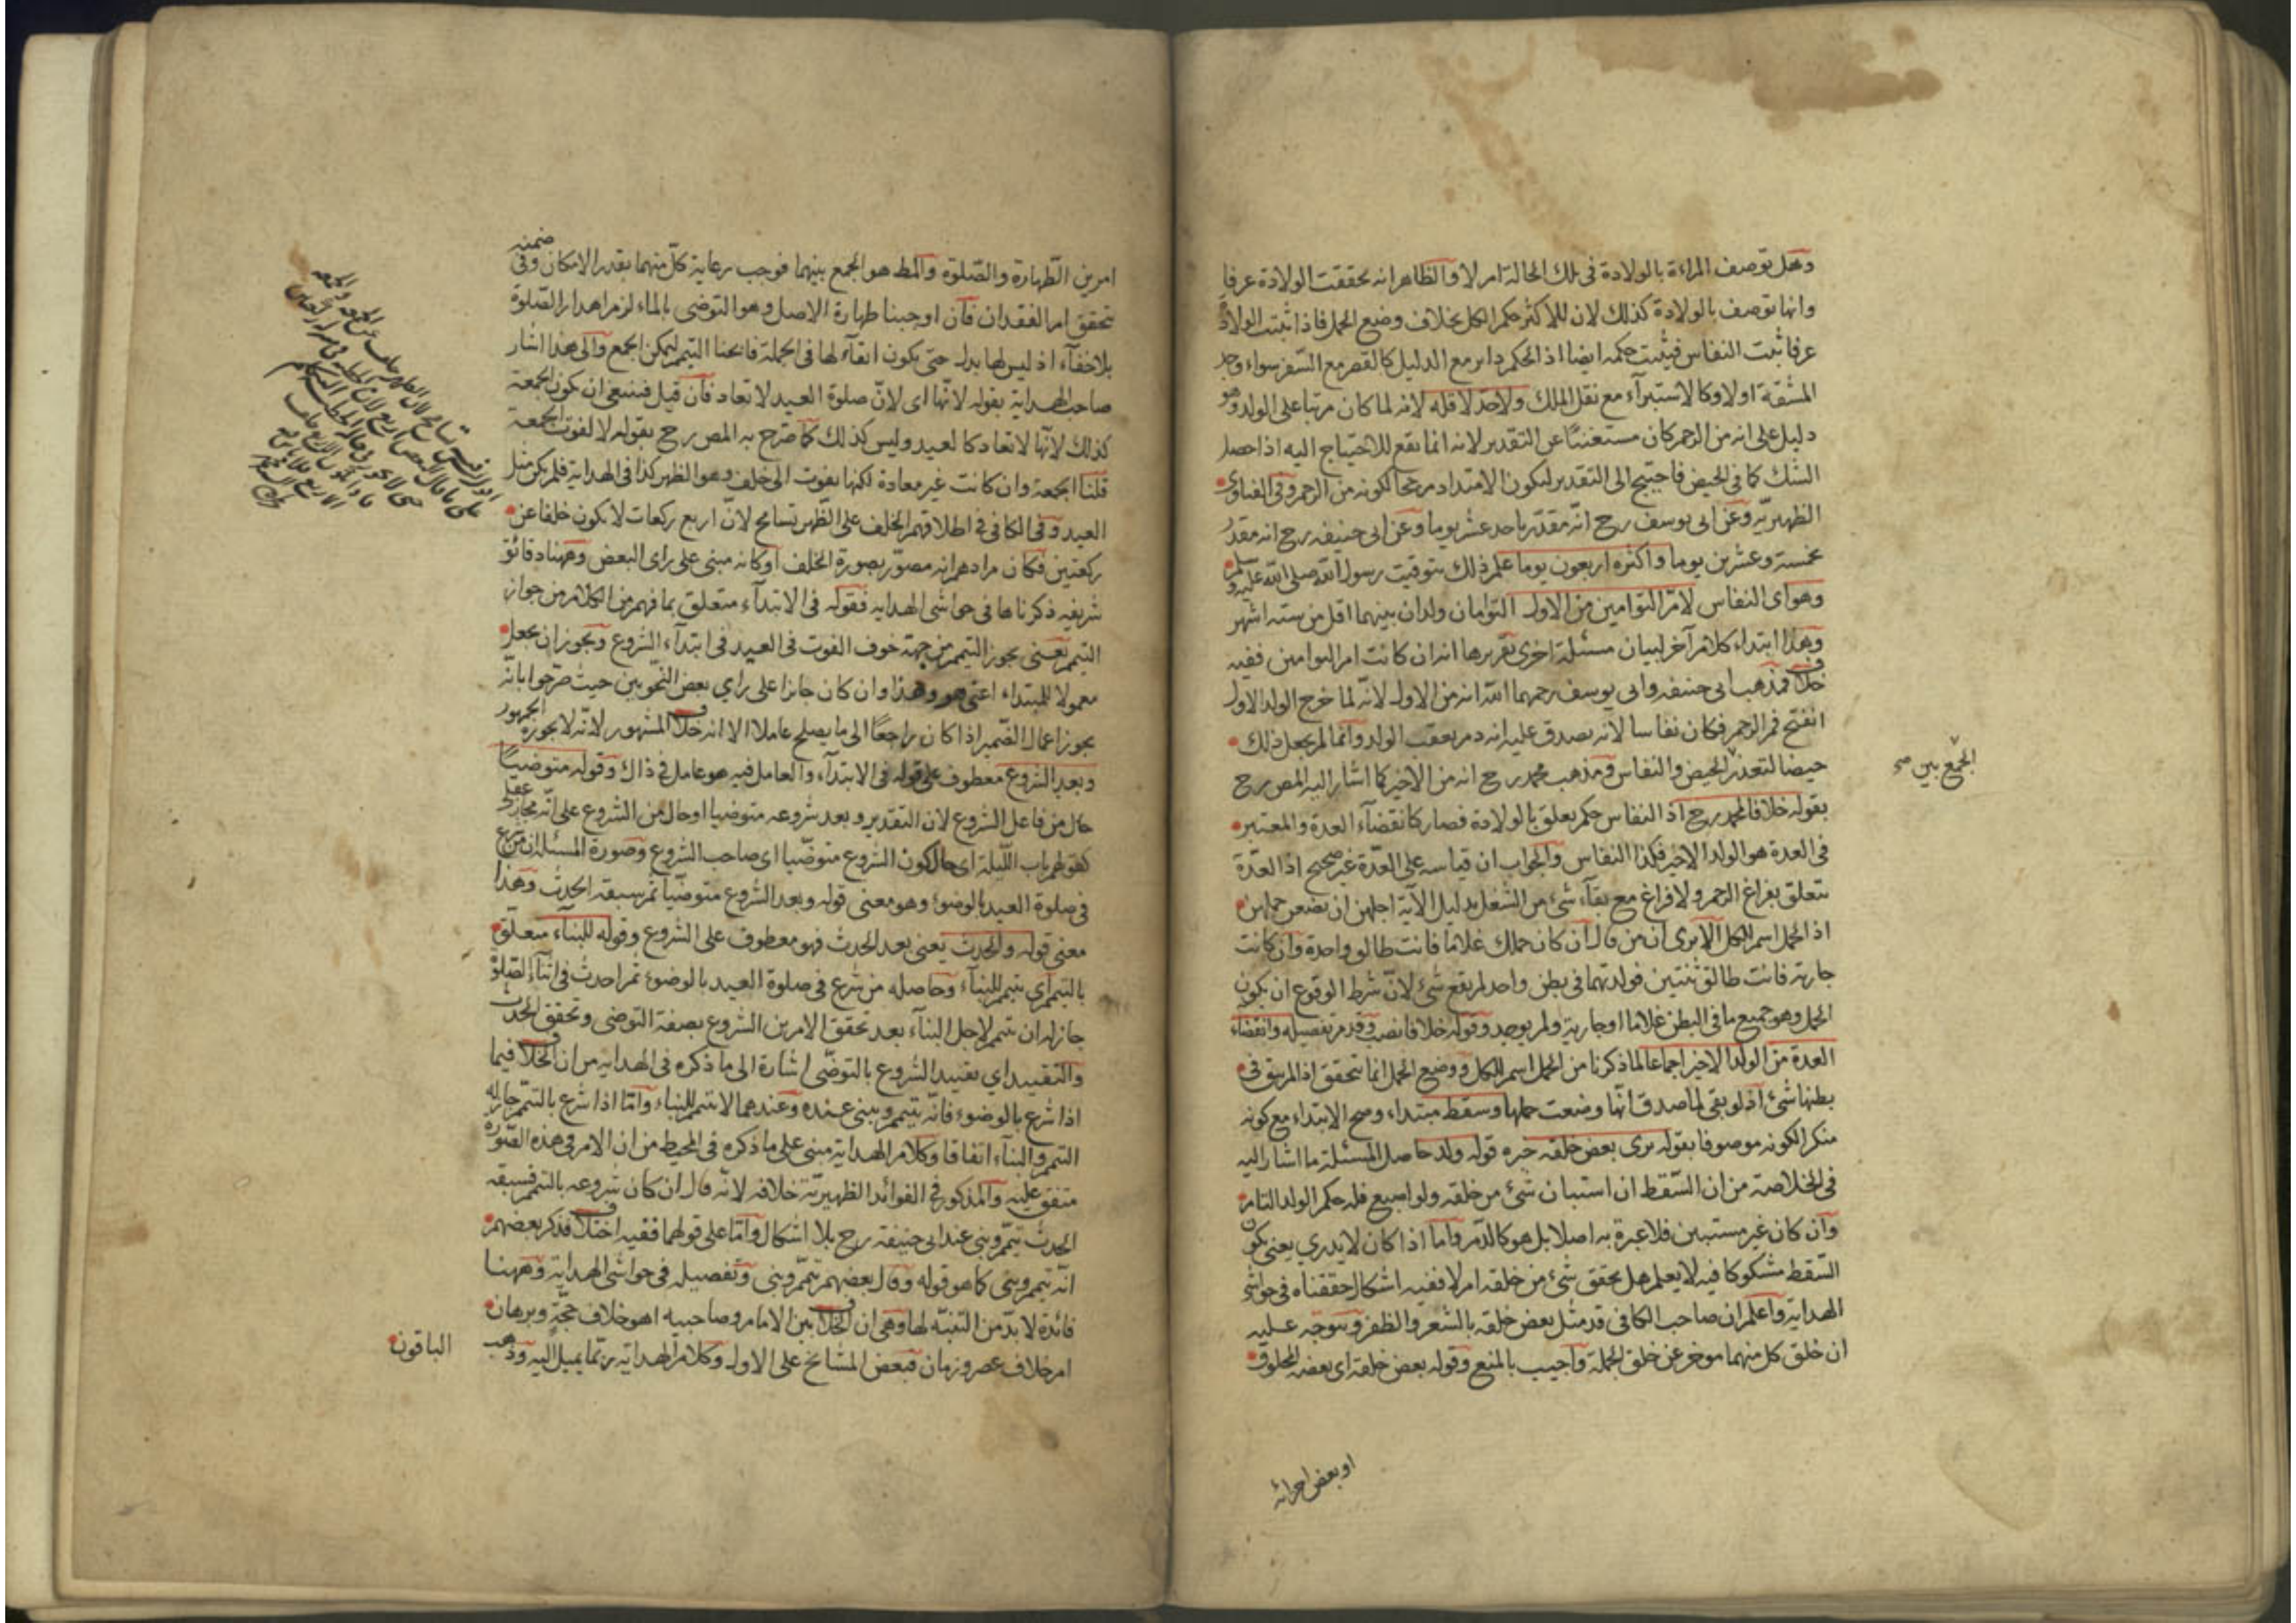 وهل توصف المراءة بالولادة فى تلك الحالة ام لا والظاهر انه تحققت الولادة عرفا
وانها توصف بالولادة كذلك لان للاكثر حكم الكل بخلاف وضع الحمل فاذا ثبتت الولادة
عرفا ثبت النفاس فيثبت حكمه ايضا اذ الحكم داير مع الدليل كالقصر مع السفر سواء وجد
المشقة او لا وكالاستبرآء مع نقل الملك ولا حد لاقله لانه لما كان مرتبا على الولد وهو
دليل على انه من الرحم كان مستغنيا عن التقدير لانه انما يقع للاحتياج اليه اذا حصل
الشك كما فى الحيض فاحتيج الى التقدير ليكون الامتداد مرجحا لكونه من الرحم وفى الفتاوى
الظهيرية وعن ابى يوسف رح انه مقدر باحد عشر يوما وعن ابى حنيفه رح انه مقدر
بخمسة وعشرين يوما واكثره اربعون يوما علم ذلك بتوقيت رسول الله صلى الله عليه وسلم
وهو اى النفاس لام التوامين من الاول التوامان ولدان بينهما اقل من سته اشهر
وهذا ابتداء كلام آخر لبيان مسئلة اخرى تقريرها انه ان كانت ام التوامين ففيه
خلاف فمذهب ابى حنيفه وابى يوسف رحمهما الله انه من الاول لانه لما خرج الولد الاول
انفتح فم الرحم فكان نفاسا لانه يصدق عليه انه دم يعقب الولد وانما لم يجعل ذلك
حيضا لتعذر الحيض والنفاس ومذهب محمد رح انه من الاخير كما اشار اليه المص رح
الجمع بين صح
بقوله خلافا لمحمد رح اذ النفاس حكم يعلق بالولادة فصار كانقضآء العدة والمعتبر
فى العدة هو الولد الاخير فكذا النفاس والجواب ان قياسه على العدة غير صحيح اذ العدة
تتعلق بفراغ الرحم ولا فراغ مع بقآء شئ من الشغل بدليل الآية اجلهن ان يضعن حملهن
اذ الحمل اسم للكل الا يرى ان من قال ان كان حملك غلاما فانت طالق واحدة وان كانت
جارية فانت طالق ثنتين فولدتهما فى بطن واحد لم يقع شئ لان شرط الوقوع ان يكون
الحمل وهو جميع ما فى البطن غلاما او جارية ولم يوجد وقوله خلافا نصب وقد مر تفصيله وانقضاء
العدة من الولد الاخير اجماعا لما ذكرنا من الحمل اسم للكل ووضع الحمل انما يتحقق اذا لم يبق فى
بطنها شئ اذ لو بقى لما صدق انها وضعت حملها وسقط مبتداء وصح الابتداء مع كونه
منكرا لكونه موصوفا بقوله يرى بعض خلقه خبره قوله ولد حاصل المسئلة ما اشار اليه
فى الخلاصة من ان السقط ان استبان شئ من خلقه ولو اصبع فله حكم الولد التام
وان كان غير مستبين فلا عبرة به اصلا بل هو كالدم واما اذا كان لا يدرى يعنى يكون
السقط مشكوكا فيه لا يعلم هل تحقق شئ من خلقه ام لا ففيه اشكال حققناه فى حواشى
الهداية واعلم ان صاحب الكافى قد مثل بعض خلقه بالشعر والظفر ويتوجه عليه
ان خلق كل منهما موخر عن خلق الجملة واجيب بالمنع وقوله بعض خلقه اى بعضه المخلوق
او بعض اجزائه
امرين الطهارة والصلوة والمط هو الجمع بينهما فوجب رعاية كل منهما بقدر الامكان وفى ضمنه
تحقق امر الفقدان فان اوجبنا طهارة الاصل وهو التوضى بالماء لزم اهدار الصلوة
بلا خفآء اذ ليس لها بدل حتى يكون ابقآء لها فى الجملة فابحنا التيمم ليمكن الجمع والى هذا اشار
صاحب الهداية بقوله لانها اى لان صلوة العيد لا تعاد فان قيل فينبغى ان يكون الجمعة
كذلك لانها لا تعاد كالعيد وليس كذلك كما صرح به المص رح بقوله لا لفوت الجمعة
قلنا الجمعة وان كانت غير معادة لكنها يفوت الى خلف وهو الظهر كذا فى الهداية فلم يكن مثل
العيد وفى الكافى فى اطلاقهم الخلف على الظهر تسامح لان اربع ركعات لا يكون خلفا عن
ركعتين فكان مرادهم انه مصور بصورة الخلف او كانه مبنى على راى البعض وههنا دقائق
شريفه ذكرناها فى حواشى الهدايه فقوله فى الابتدآء متعلق بما فهم من الكلام من جواز
التيمم يعنى يجوز التيمم من جهة خوف الفوت فى العيد فى ابتدآء الشروع ويجوز ان يجعل
معمولا للمبتداء اعنى هو وهذا وان كان جائزا على راي بعض النحويين حيث صرحوا بانه
يجوز اعمال الضمير اذا كان راجعا الى ما يصلح عاملا الا انه خلاف المشهور لانه لا يجوزه الجمهور
وبعد الشروع معطوف على قوله فى الابتدآء والعامل فيه هو عامل فى ذاك وقوله متوضيا
حال من فاعل الشروع لان التقدير وبعد شروعه متوضيا او حال من الشروع على انه مجاز عقلى
كقولهم باب الليلة اى حال كون الشروع متوضيا اى صاحب الشروع وصورة المسئلة ان من شرع
فى صلوة العيد بالوضوء وهو معنى قوله وبعد الشروع متوضيا ثم سبقه الحدث وهذا
معنى قوله والحدث يعنى بعد الحدث فهو معطوف على الشروع وقوله للبنآء متعلق
بالتيمم اى يتيمم للبنآء وحاصله من شرع فى صلوة العيد بالوضوء ثم احدث فى اثنآء الصلوة
جاز له ان يتيمم لاجل البنآء بعد تحقق الامرين الشروع بصفة التوضى وتحقق الحدث
والتقييد اي تقييد الشروع بالتوضى اشارة الى ما ذكره فى الهدايه من ان الخلاف فيما
اذا شرع بالوضوء فانه يتيمم ويبنى عنده وعندهما لا يتيمم للبناء واما اذا شرع بالتيمم جاز له
التيمم والبنآء اتفاقا وكلام الهداية مبنى على ما ذكره فى المحيط من ان الامر فى هذه الصوره
متفق عليه والمذكور فى الفوائد الظهيرية خلافه لانه قال ان كان شروعه بالتيمم فسبقه
الحدث تيمم وبنى عند ابى حنيفة رح بلا اشكال واما على قولهما ففيه اختلاف فذكر بعضهم
انه تيمم وبنى كما هو قوله وقال بعضهم تيمم وبنى وتفصيله فى حواشى الهداية وههنا
فائدة لا بد من التنبه لها وهى ان الخلاف بين الامام وصاحبيه اهو خلاف حجة وبرهان
ام خلاف عصر وزمان فبعض المشائخ على الاول وكلام الهداية ربما يميل اليه وذهب
الباقون